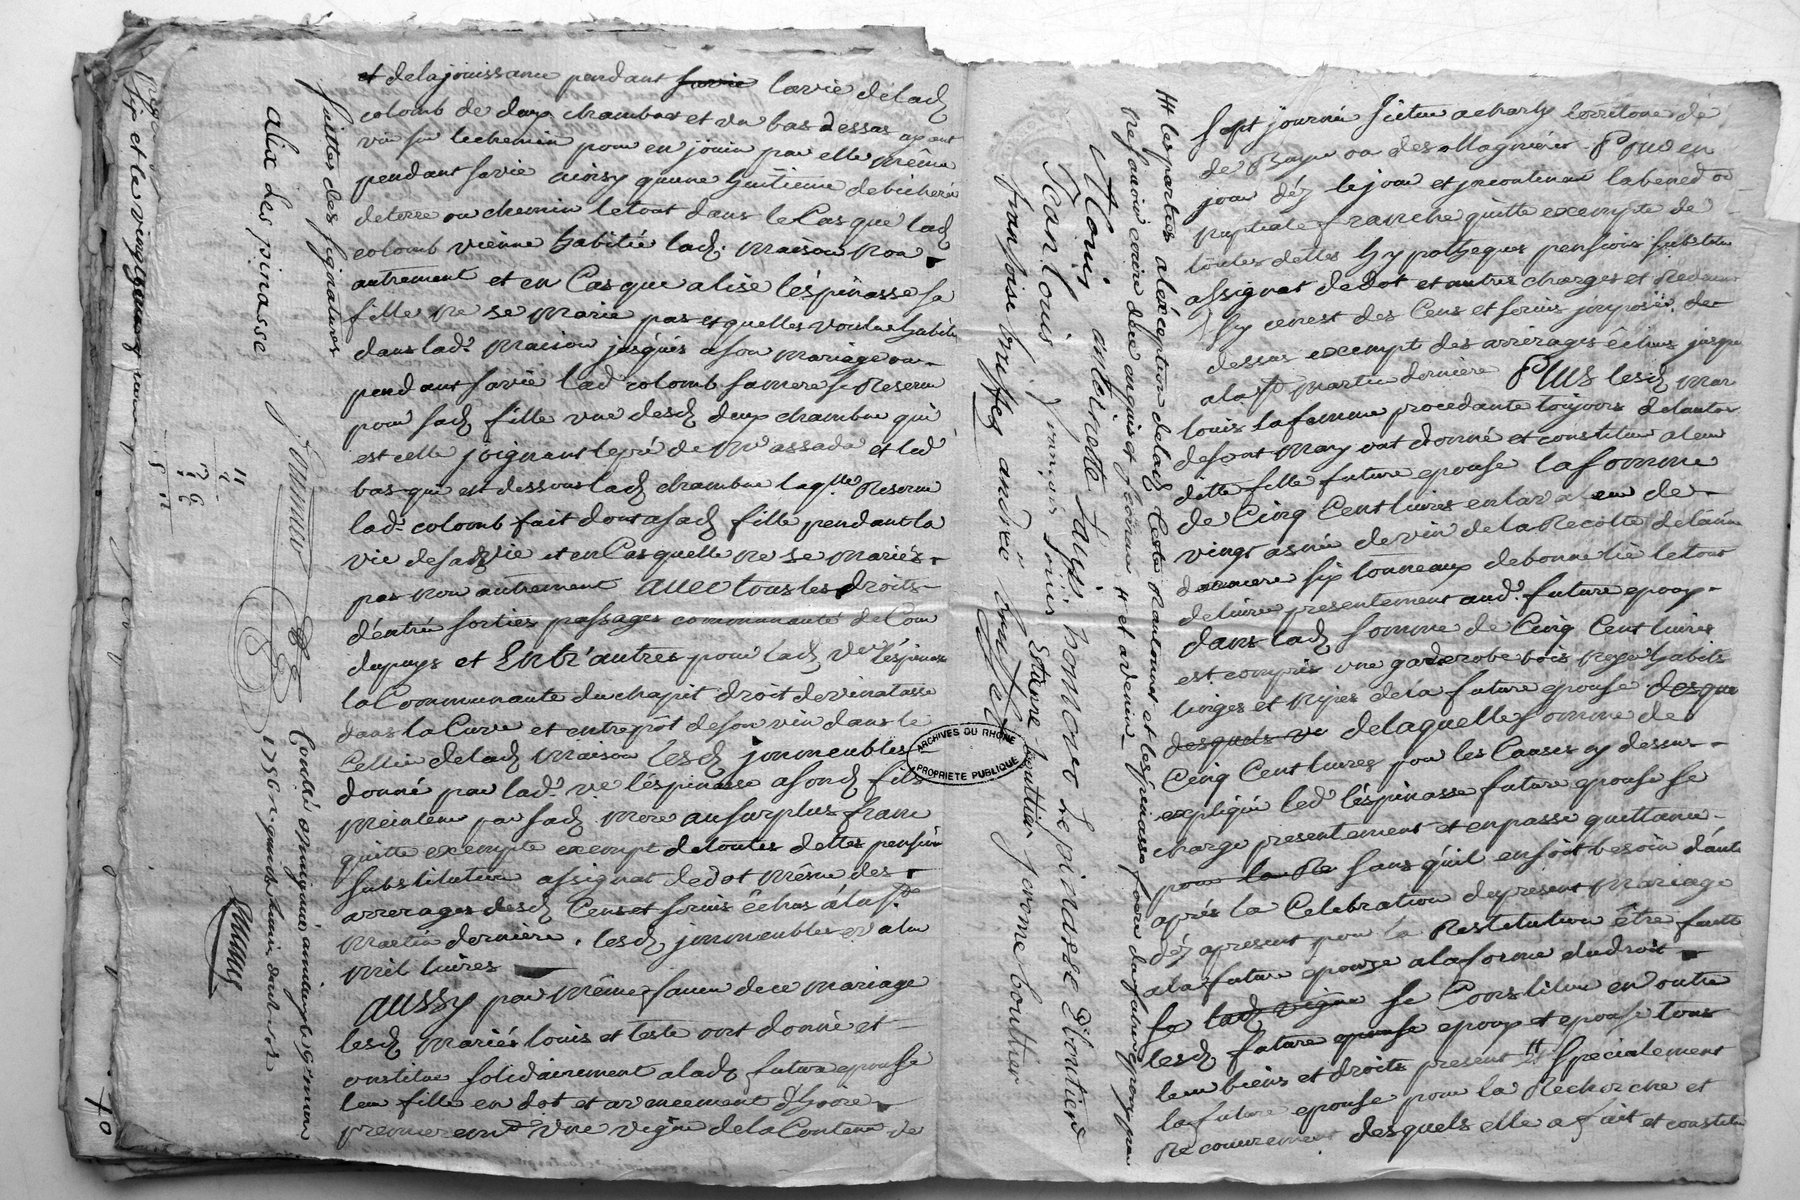 et delajouissance pendant savie lavie delad
colomb de deux chambres et un bas dessus ayant
vue sur lechemin pour en jouir par elle même
pendant savie ainsy qu'une huitieme debicherée
deterre ou chemin letout dans le Cas que lad
colomb vienne habitée lad. maison non
autrement et en Cas que alise l'espinasse sa
fille ne se marie pas et quelles voulut habiter
dans lad. maison jusques a son mariage ou
pendant savie lad colomb samere se Reserve
pour sad fille une desd deux chambre qui
est celle joignant lepré de Mr assada et led
bas qui est dessous lad chambre laqlle Reserve
lad. colomb fait dont asad fille pendant la
vie et en Cas quelle ne se mariés
pas non autrement avec tous les droits
d'entrée sorties passages communauté de Cour
dupuys et Entr'autres pour lad ve l'espinasse
la Communauté duchapit droit devinatasse
dans la Cuve et entrepôt deson vin dans le
Cellier delad maison lesd jmmeubles
donné par lad. ve l'espinasse asond fils
meintenu par sad mere ausurplus franc
quitte exempte exempt detoutes dettes pension
substitution assignat dedot même des
arrerages desd Cens et servis échus a la st
martin derniere. lesd jmmeubles valu
mil livres
aussy par même faveur de ce mariage
lesd mariés louis et teste ont donné et
constitué solidairement alad future epouse
leur fille en dot et avancement d'hoirie
premierement une vigne dela Contenu de
suittes des signatures
alix des pinasse
Controllé
1756
ARCHIVES DU RHÔNE
PROPRIÉTÉ PUBLIQUE
40
Sept journée Scituée acharly territoire de
de ou des Magnieres Pour en
jouir déz lejour et jncontinent la bened on
nuptiale franche quitte exempte de
toutes dettes hypotheques pensions substitu
assignat dedot et autres charges et Redevan
sy cenest des Cens et servis jmposés. de
dessus exempt des arrerages échus jusqua
ala st martin derniere PLUS lesd mar
louis sa femme procedante toujours delautor
desont mary ont donné et constitué aleur
ditte fille future epouse la somme
de Cinq Cent livres en la valeur de
vingt asnée devin dela Recolte delannée
derniere six tonneaux debonne lie letout
delivré presentement aud. future epoux
dans lad somme de Cinq Cent livres
est compris une garderobe bois noyer habits
linges et nipes dela future epouse desque
desquels ve delaquelle somme de
Cinq Cent livres pour les Causes cy dessus
expliqué led l'espinasse future epouse se
charge presentement et enpasse quittance
pour la Re sans qu'il en soit besoin d'autr
aprés la Celebration dupresent mariage
déz apresent pour la Restitution être faitte
ala future epouse ala forme dudroit
se lad vigne se Constitue en outre
lesd future epouse epoux et epouse tous
leur biens et droits present # specialement
la future epouse pour la Recherche et
Recouvrement desquels elle a fait et constitu
# les parties al'exception delad teste Mantonnet et lespinasse frere dufutur epoux pour
ne savoir ecrire dece enquis et somme # et advenir
Mlouis antoinette taux honore Lepinasse Eboutiere
Jean louis françois louis Etienne bouttier jerome boultier
fransoise briffes andré boutiés